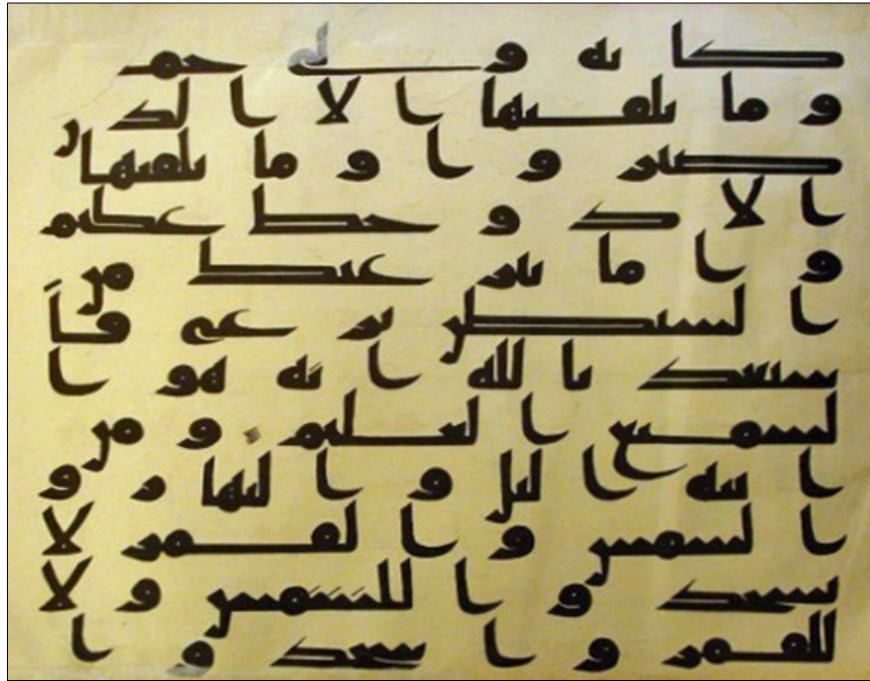 كانه ولي حميم
وما يلقيها الا الذين
صبروا وما يلقيها
الا ذو حظ عظيم
واما ينزغنك من
الشيطن نزغ فا
ستعذ بالله انه هو ا
لسميع العليم ومن
ايته اليل والنهار و
الشمس والقمر لا
تسجدوا للشمس ولا
للقمر واسجدوا